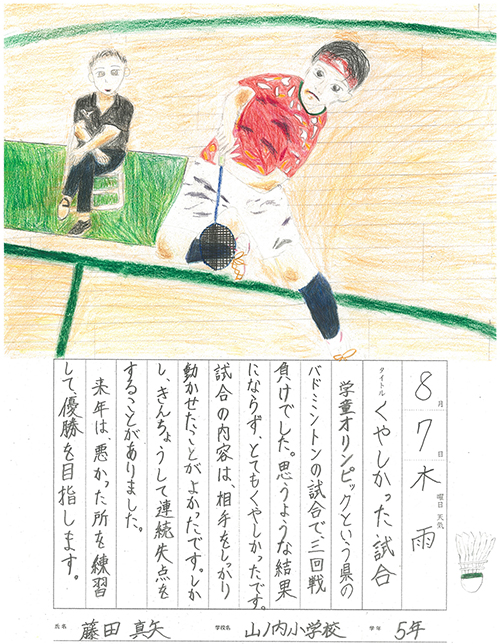 8月7日木曜日 天気 雨
タイトル くやしかった試合
学童オリンピックという県の
バドミントンの試合で、三回戦
負けでした。思うような結果
にならず、とてもくやしかったです。
試合の内容は、相手をしっかり
動かせたことがよかったです。しか
し、きんちょうして連続失点を
することがありました。
来年は、悪かった所を練習
して、優勝を目指します。
氏名 藤田 真矢 学校名 山ノ内小学校 学年 5年